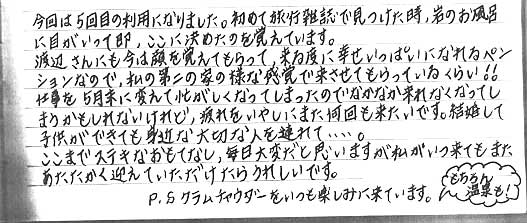 今回は5回目の利用になりました。初めて旅行雑誌で見つけた時、岩のお風呂
に目がいって即、ここに決めたのを覚えています。
渡辺さんにも今は顔を覚えてもらって、来る度に幸せいっぱいになれるペン
ションなので、私の第二の家の様な感覚で来させてもらっているくらい!!
仕事を5月末に変えて忙がしくなってしまったのでなかなか来れなくなってし
まうかもしれないけれど、疲れをいやしにまた何回も来たいです。結婚して
子供ができても身近な大切な人を連れて‥‥。
ここまでステキなおもてなし、毎日大変だと思いますが私がいつ来てもまた
あたたかく迎えていただけたらうれしいです。
P.S クラムチャウダーをいつも楽しみに来ています。
もちろん
温泉も!